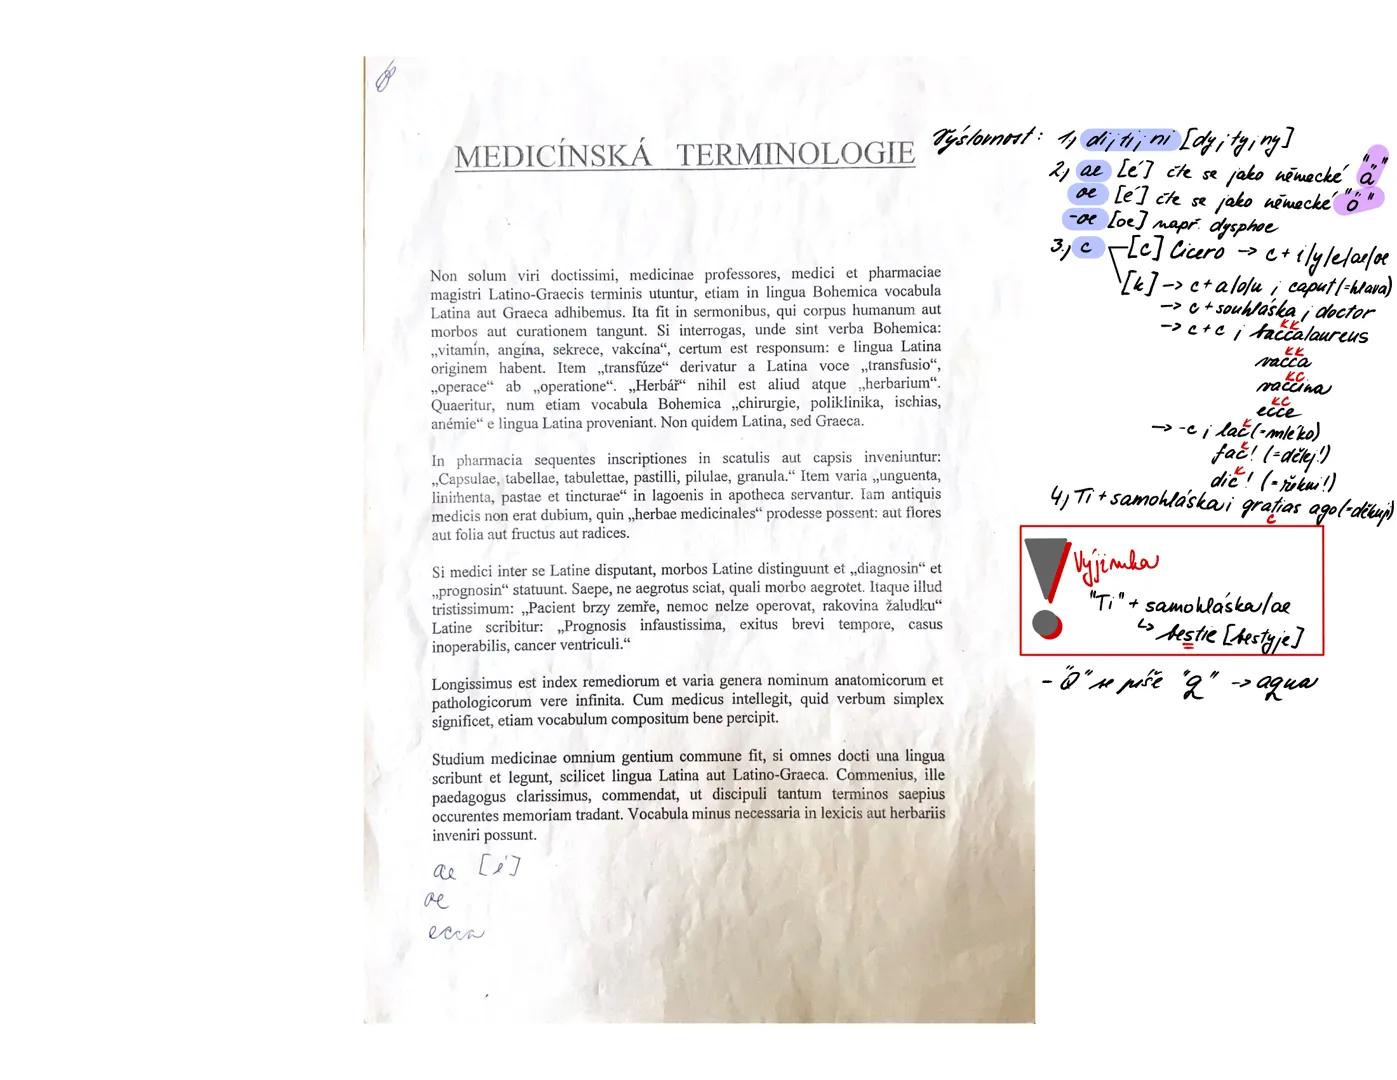 MEDICÍNSKÁ TERMINOLOGIE
Non solum viri doctissimi, medicinae professores, medici et pharmaciae
magistri Latino-Graecis terminis utuntur, etiam in lingua Bohemica vocabula
Latina aut Graeca adhibemus. Ita fit in sermonibus, qui corpus humanum aut
morbos aut curationem tangunt. Si interrogas, unde sint verba Bohemica:
„vitamín, angína, sekrece, vakcína“, certum est responsum: e lingua Latina
originem habent. Item „transfúze“ derivatur a Latina voce „transfusio“,
„operace“ ab „operatione“. „Herbář“ nihil est aliud atque „herbarium“.
Quaeritur, num etiam vocabula Bohemica „chirurgie, poliklinika, ischias,
anémie“ e lingua Latina proveniant. Non quidem Latina, sed Graeca.
In pharmacia sequentes inscriptiones in scatulis aut capsis inveniuntur:
„Capsulae, tabellae, tabulettae, pastilli, pilulae, granula.“ Item varia „unguenta,
linimenta, pastae et tincturae“ in lagoenis in apotheca servantur. Iam antiquis
medicis non erat dubium, quin „herbae medicinales“ prodesse possent: aut flores
aut folia aut fructus aut radices.
Si medici inter se Latine disputant, morbos Latine distinguunt et „diagnosin“ et
„prognosin“ statuunt. Saepe, ne aegrotus sciat, quali morbo aegrotet. Itaque illud
tristissimum: „Pacient brzy zemře, nemoc nelze operovat, rakovina žaludku“
Latine scribitur: „Prognosis infaustissima, exitus brevi tempore, casus
inoperabilis, cancer ventriculi.“
Longissimus est index remediorum et varia genera nominum anatomicorum et
pathologicorum vere infinita. Cum medicus intellegit, quid verbum simplex
significet, etiam vocabulum compositum bene percipit.
Studium medicinae omnium gentium commune fit, si omnes docti una lingua
scribunt et legunt, scilicet lingua Latina aut Latino-Graeca. Commenius, ille
paedagogus clarissimus, commendat, ut discipuli tantum terminos saepius
occurentes memoriam tradant. Vocabula minus necessaria in lexicis aut herbariis
inveniri possunt.
ae [é]
oe
ecca
Výslovnost: 1, di, ti, ni [dy, ty, ny]
2, ae [é] čte se jako německé "ä"
oe [é] čte se jako německé "ö"
-oe [oe] např. dysphoe
3., c [c] Cicero -> c + i/y/e/ae/oe
[k] -> c + a/o/u ; caput (=hlava)
-> c + souhláska ; doctor
-> c + c ; baccalaureus
k k
vacca
k k
vaccina
k c
ecce
k c
-> -c ; lac (=mléko)
k
fac! (=dělej!)
k
dic! (=řekni!)
k
4, Ti + samohláska ; gratias ago (=děkuji)
c
Výjimka
"Ti" + samohláska/ae
↳ bestie [bestyje]
- "Q" se píše "q" -> aqua